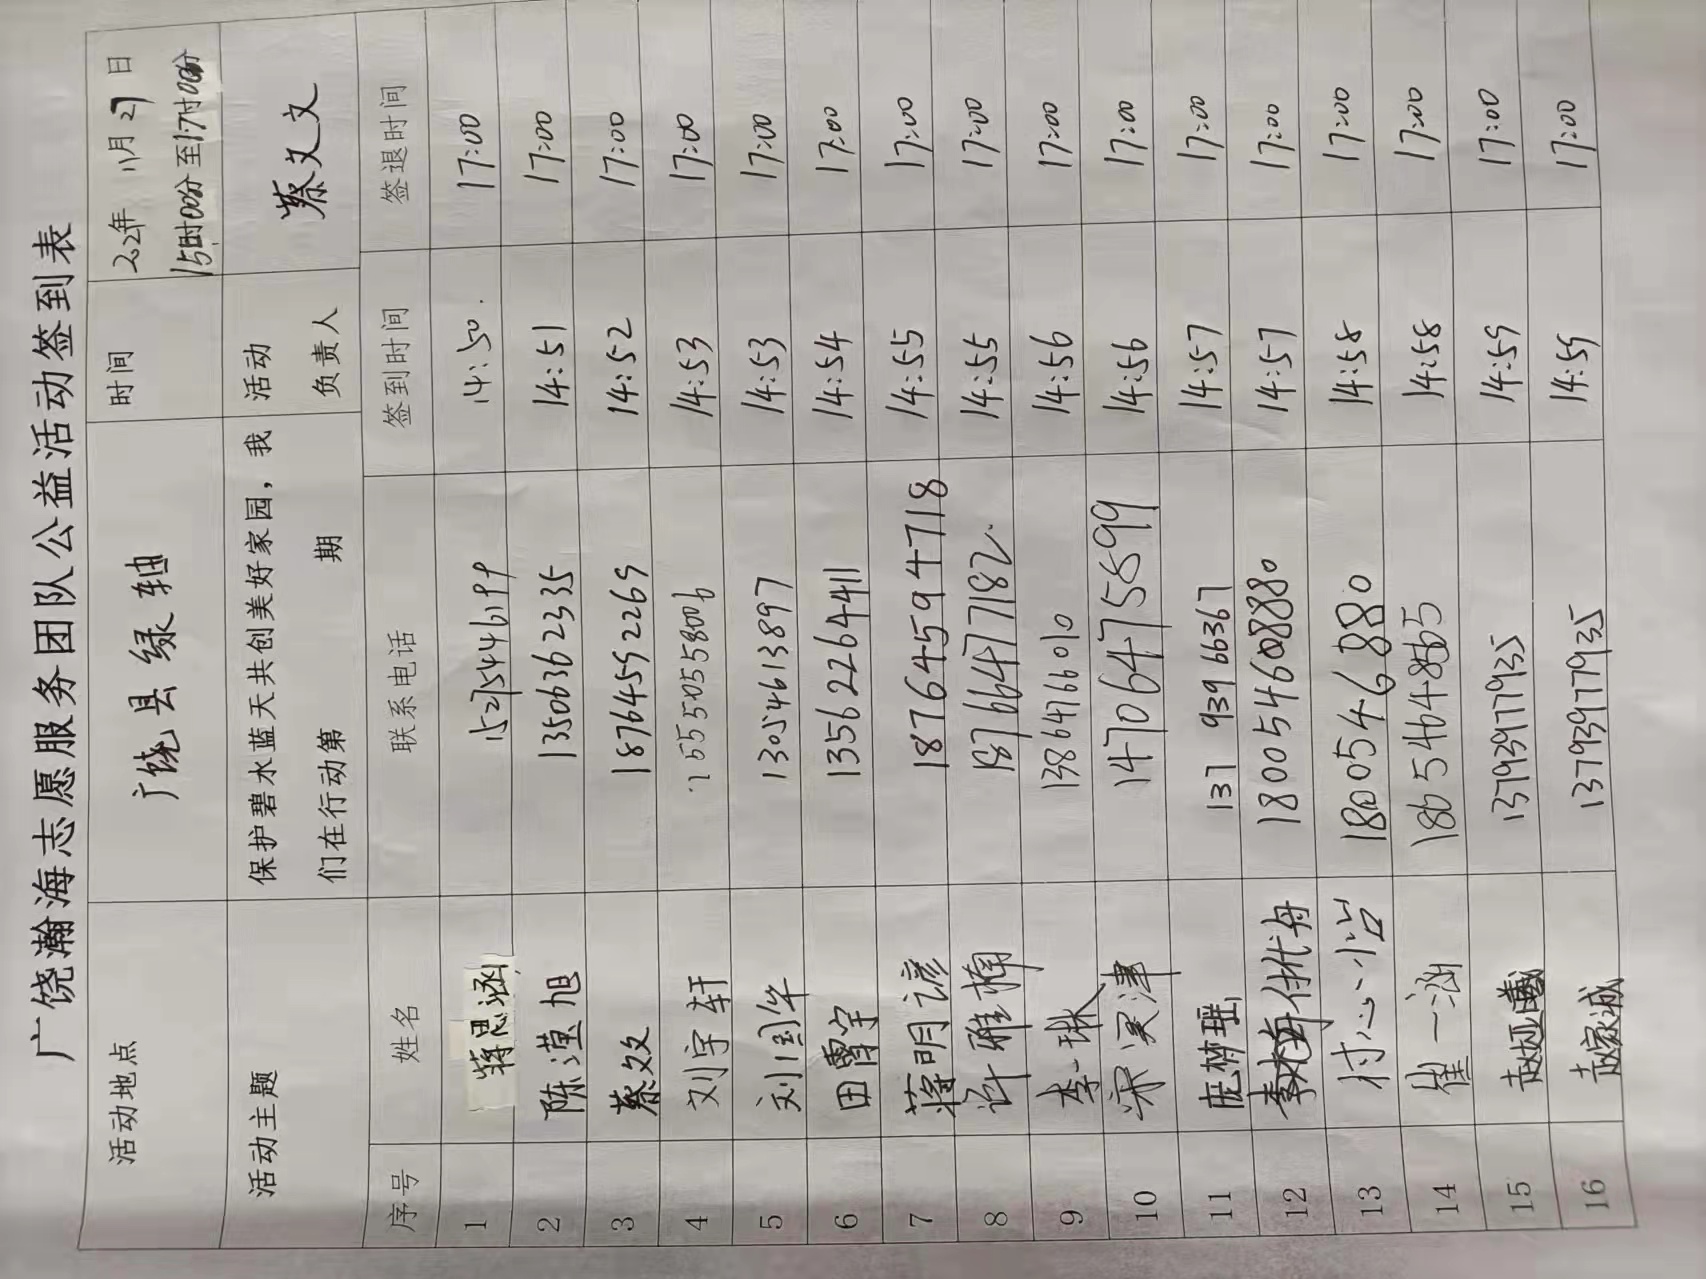 广饶瀚海志愿服务团队公益活动签到表
活动地点 广饶县绿轴 时间 2022年 11月27日
15时00分至17时00分
活动主题 保护碧水蓝天共创美好家园，我 活动 蔡文文
们在行动第 期 负责人
序号 姓名 联系电话 签到时间 签退时间
1 蒋思涵 15275446199 14:50 17:00
2 陈滢旭 13506362335 14:51 17:00
3 蔡效 18764592269 14:52 17:00
4 刘宇轩 15550558006 14:53 17:00
5 刘国华 13054613897 14:53 17:00
6 田雪宇 13562264411 14:54 17:00
7 蒋明谚 18764594718 14:55 17:00
8 许雅楠 18766477182 14:55 17:00
9 李琳 13864766010 14:56 17:00
10 宋昊津 14706475899 14:56 17:00
11 庞梦瑶 137 939 66367 14:57 17:00
12 18005460880 14:57 17:00
13 村心怡 1800546880 14:58 17:00
14 崔一涵 18654648565 14:58 17:00
15 赵 13793977935 14:59 17:00
16 赵家诚 13793977935 14:59 17:00